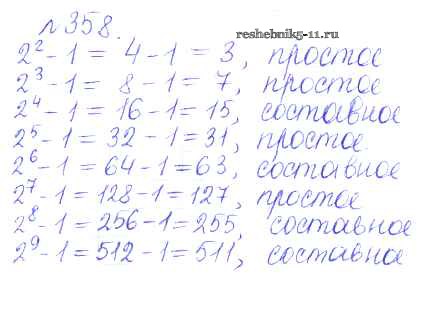 №358.
reshebnik5-11.ru
2² - 1 = 4 - 1 = 3, простое
2³ - 1 = 8 - 1 = 7, простое
2⁴ - 1 = 16 - 1 = 15, составное
2⁵ - 1 = 32 - 1 = 31, простое.
2⁶ - 1 = 64 - 1 = 63, составное
2⁷ - 1 = 128 - 1 = 127, простое
2⁸ - 1 = 256 - 1 = 255, составное
2⁹ - 1 = 512 - 1 = 511, составное